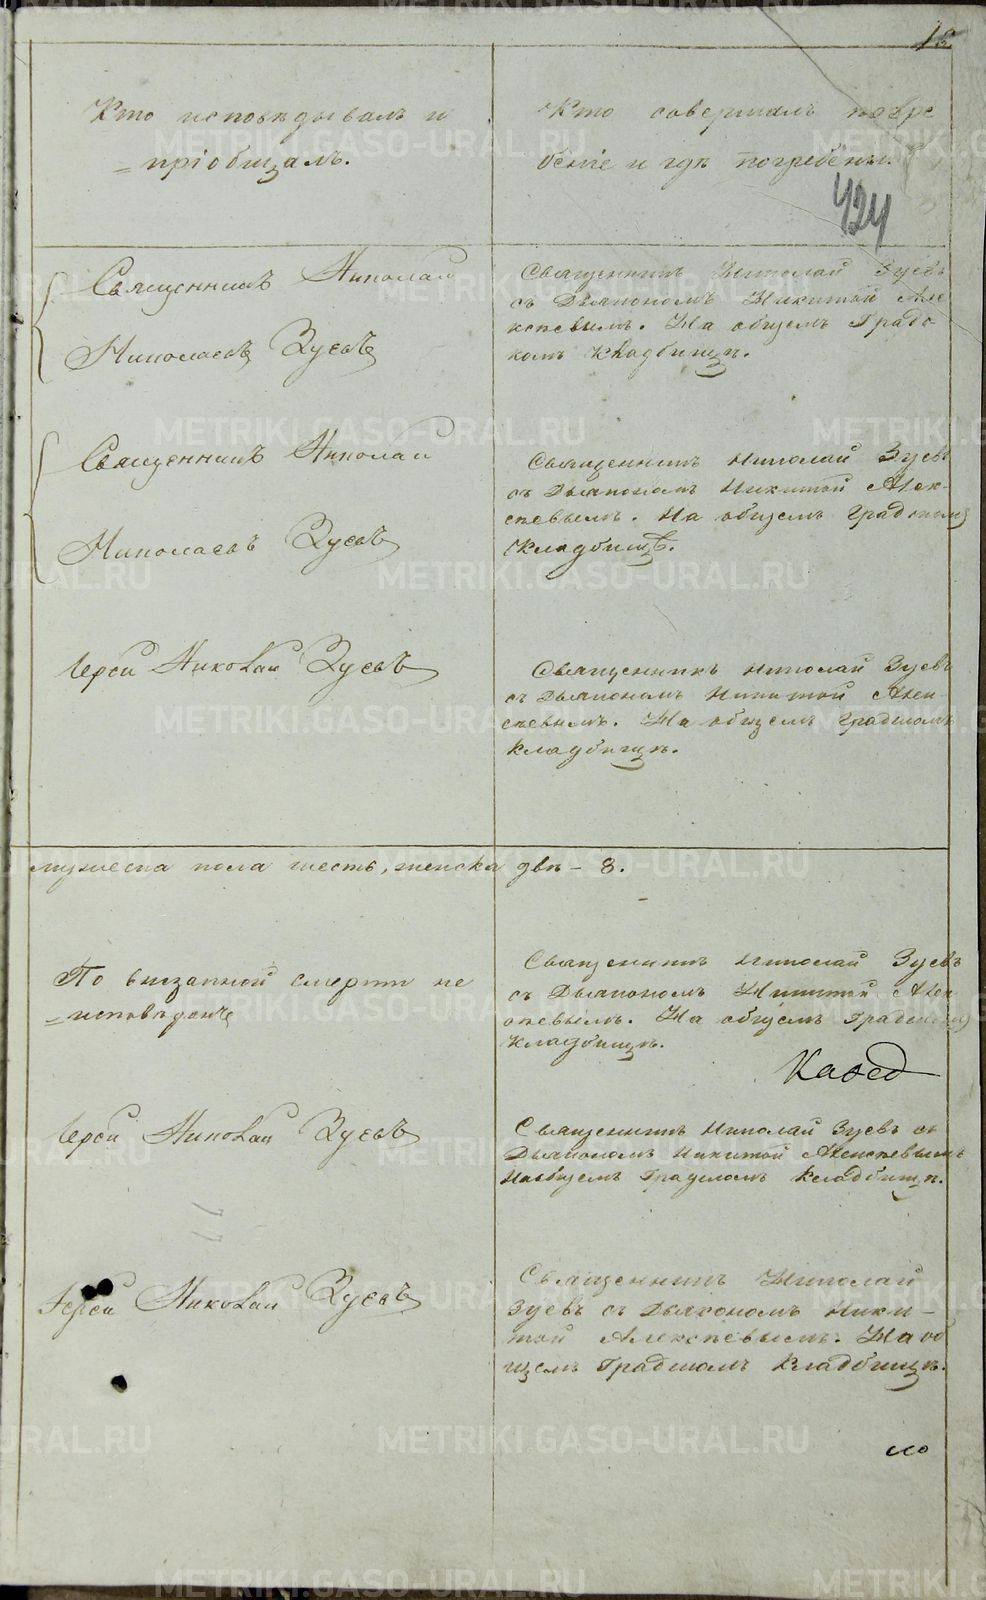 Кто исповѣдывалъ и
пріобщалъ.
Кто совершалъ погре
беніе и гдѣ погребены.
424
Священникъ Николай
Николаевъ Зуевъ
Священникъ Николай Зуевъ
съ Дьякономъ Никитой Але
ксѣевымъ. На общемъ Градс
комъ Кладбищѣ.
Священникъ Николай
Николаевъ Зуевъ
Священникъ Николай Зуевъ
съ Дьякономъ Никитой Алек-
сѣевымъ. На общемъ Градскомъ
Кладбищѣ.
Іерей Николай Зуевъ
Священникъ Николай Зуевъ
съ Дьякономъ Никитой Алек-
сѣевымъ. На общемъ Градскомъ
Кладбищѣ.
мужеска пола шесть, женска двѣ – 8.
По внезапной смерти не
исповѣданъ
Священникъ Николай Зуевъ
съ Дьякономъ Никитой Алек
сѣевымъ. На общемъ Градскомъ
Кладбищѣ.
Каѳед
Іерей Николай Зуевъ
Священникъ Николай Зуевъ съ
Дьякономъ Никитой Алексѣевымъ
На общемъ Градскомъ Кладбищѣ.
Іерей Николай Зуевъ
Священникъ Николай
Зуевъ съ Дьякономъ Ники-
той Алексѣевымъ. На об
щемъ Градскомъ Кладбищѣ.
METRIKI.GASO-URAL.RU